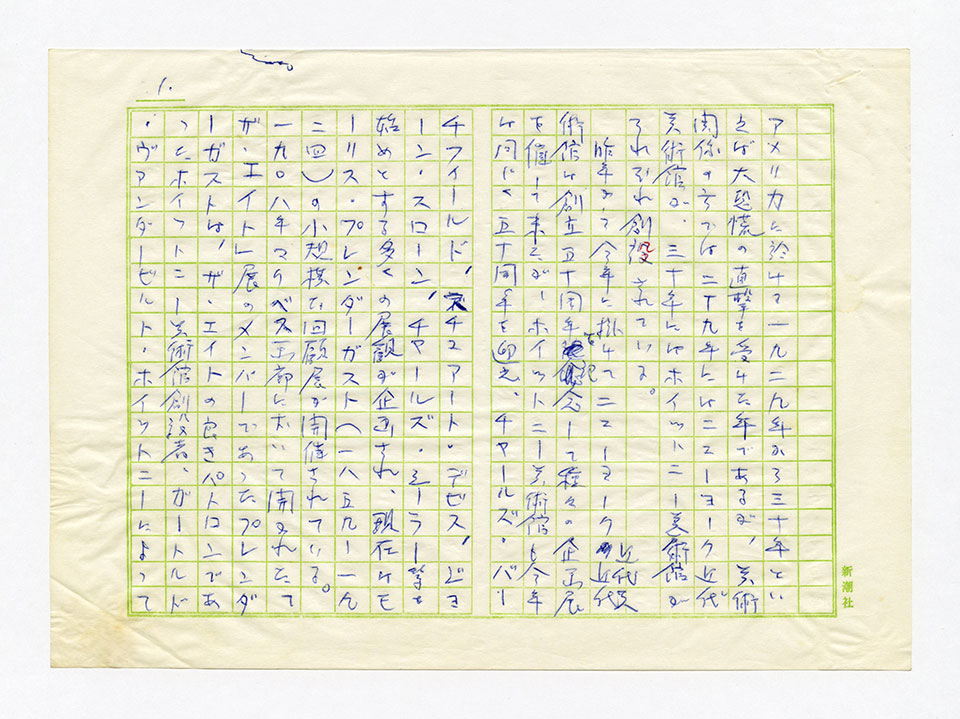 1.
アメリカに於いて一九二九年から三十年とい
えば大恐慌の直撃を受けた年であるが、美術
関係の方では二十九年にはニューヨーク近代
美術館が、三十年にはホイットニー美術館が
それぞれ創設されている。
昨年から今年に掛けてニューヨーク近代美
術館は創立五十周年を記念して種々の企画展
を催して来たが、ホイットニー美術館も今年
は同じく五十周年を迎え、チャールズ・バー
チフィールド、スチュアート・デビス、ジョ
ーン・スローン、チャールズ・シーラー等を
始めとする多くの展観が企画され、現在はモ
ーリス・プレンダーガスト(一八五九ー一九
二四)の小規模な回顧展が開催されている。
一九〇八年マクベス画廊において開かれた
ザ・エイト展のメンバーであったプレンダ
ーガストは、ザ・エイトの良きパトロンであ
ったホイットニー美術館創設者、ガートルド
・ヴァンダービルト・ホイットニーによって
新潮社